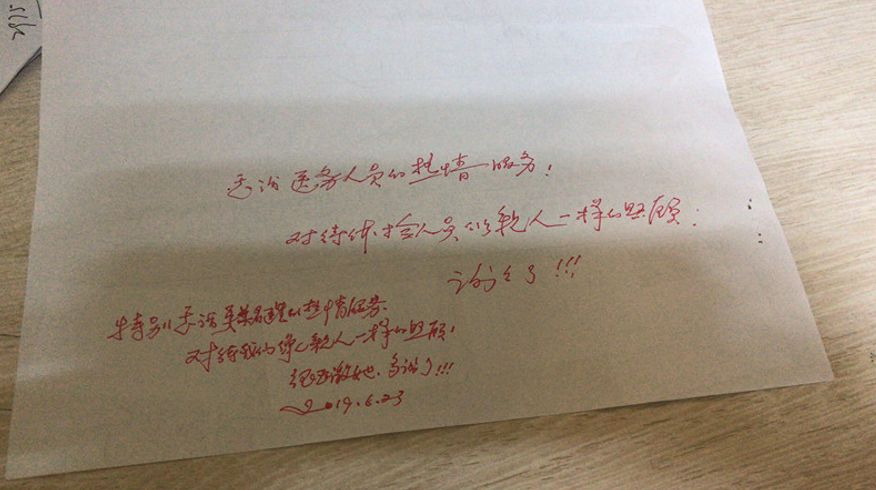 感谢医务人员的热情服务!
对待体检人员似亲人一样的照顾!
谢谢了!!!
特别感谢的热情服务
对待我们像亲人一样的照顾!
感激她、多谢了!!!
2019.6.23